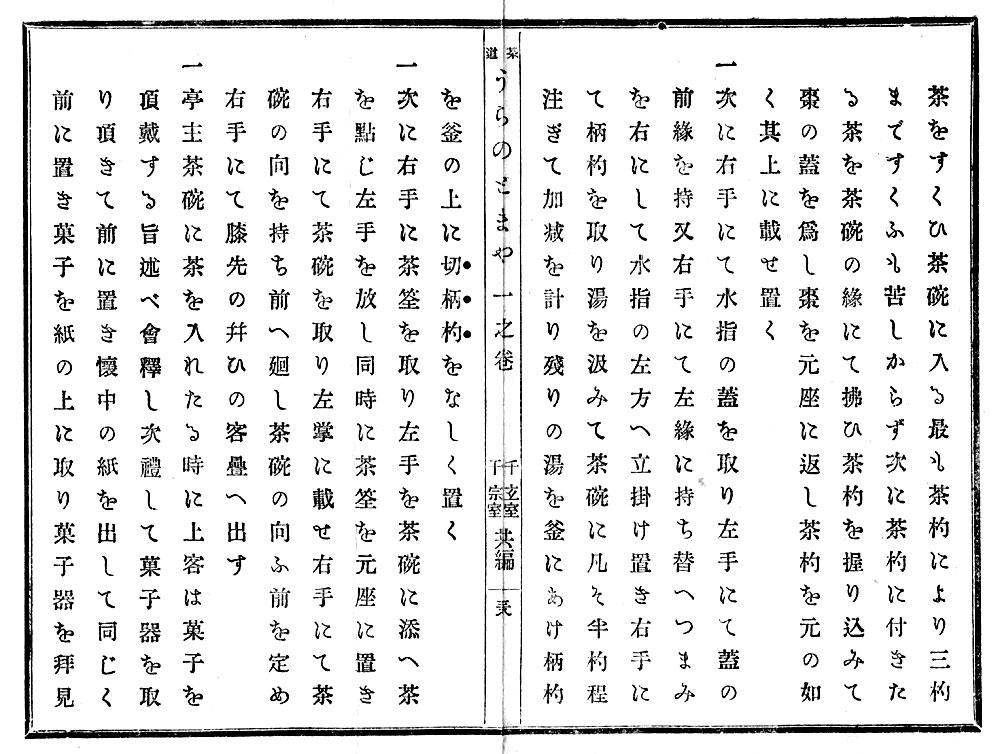 茶をすくひ茶碗に入る最も茶杓により三杓
まですくふも苦しからず次に茶杓に付きた
る茶を茶碗の緣にて拂ひ茶杓を握り込みて
棗の蓋を爲し棗を元座に返し茶杓を元の如
く其上に載せ置く
一次に右手にて水指の蓋を取り左手にて蓋の
前緣を持又右手にて左緣に持ち替へつまみ
を右にして水指の左方へ立掛け置き右手に
て柄杓を取り湯を汲みて茶碗に凡そ半杓程
注ぎて加减を計り殘りの湯を釜にあけ柄杓
茶道 うらのとまや 一之卷 千玄室 千宗室 共編
を釜の上に切柄杓をなしく置く
一次に右手に茶筌を取り左手を茶碗に添へ茶
を點じ左手を放し同時に茶筌を元座に置き
右手にて茶碗を取り左掌に載せ右手にて茶
碗の向を持ち前へ廻し茶碗の向ふ前を定め
右手にて膝先の幷ひの客疊へ出す
一亭主茶碗に茶を入れたる時に上客は菓子を
頂戴する旨述べ會釋し次禮して菓子器を取
り頂きて前に置き懷中の紙を出して同じく
前に置き菓子を紙の上に取り菓子器を拜見